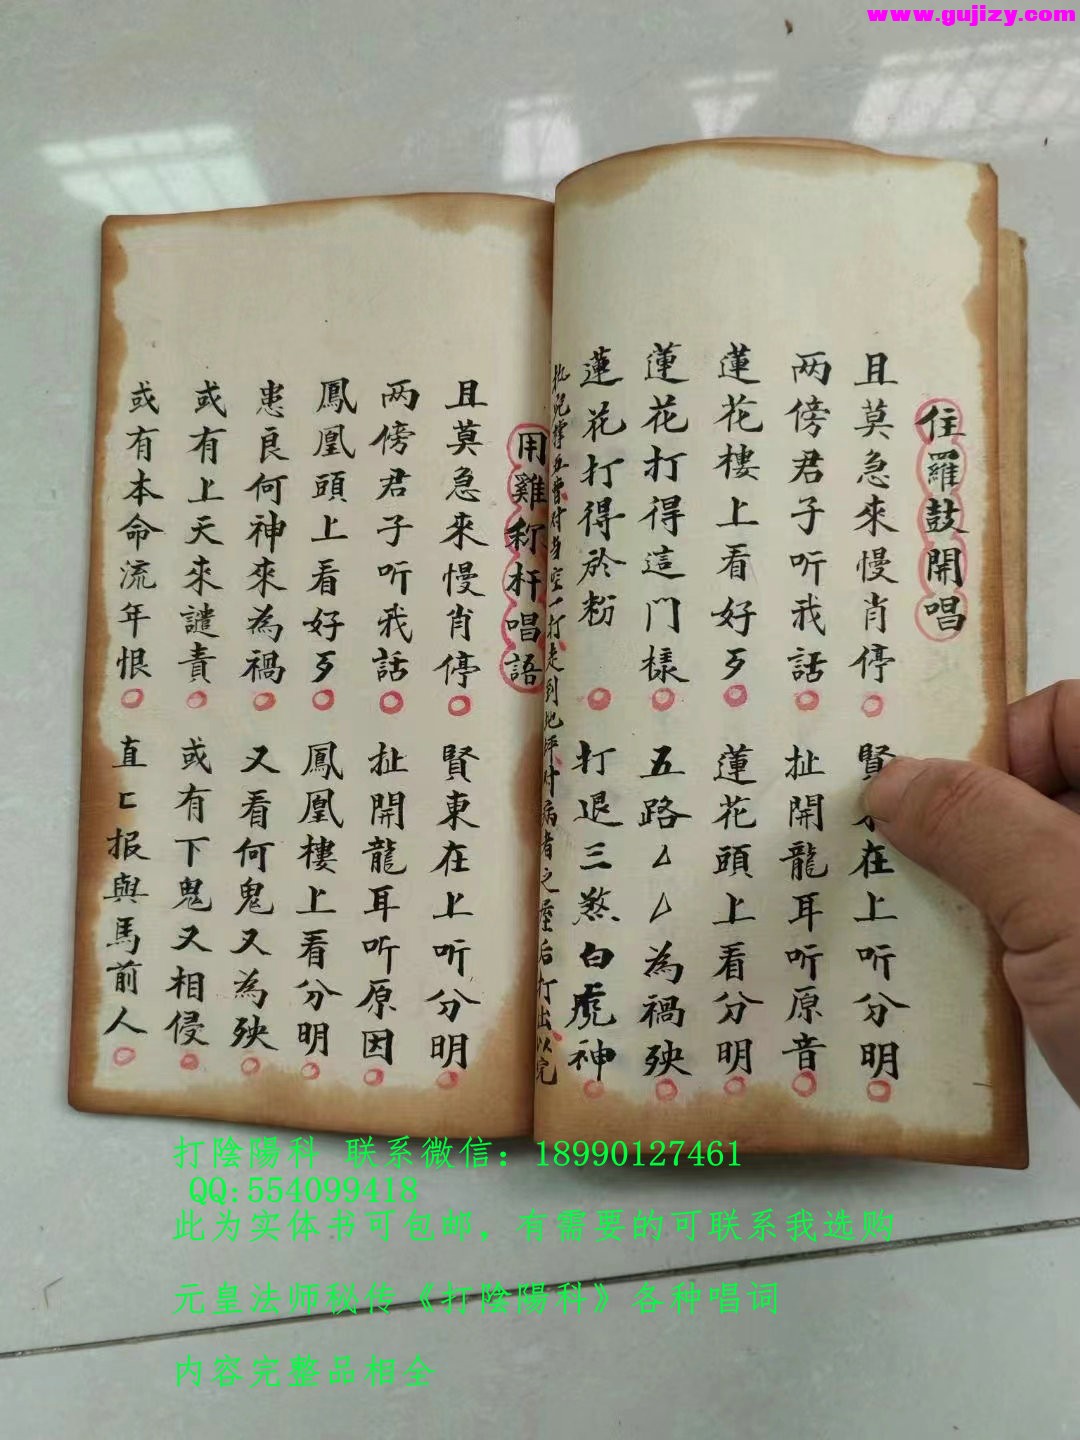 www.gujizy.com
住羅鼓開唱
且莫急來慢肖停 賢東在上听分明
两傍君子听我話 扯開龍耳听原音
蓮花樓上看好歹 蓮花頭上看分明
蓮花打得這门樣 五路厶厶為禍殃
蓮花打得於粉 打退三煞白虎神
打走到地坪对病者之屋后打出以完
用雞称杆唱語
且莫急來慢肖停 賢東在上听分明
两傍君子听我話 扯開龍耳听原因
鳳凰頭上看好歹 鳳凰樓上看分明
患良何神來為禍 又看何鬼又為殃
或有上天來譴責 或有下鬼又相侵
或有本命流年恨 直匸报與馬前人
打陰陽科 联系微信：18990127461
QQ:554099418
此为实体书可包邮，有需要的可联系我选购
元皇法师秘传《打陰陽科》各种唱词
内容完整品相全